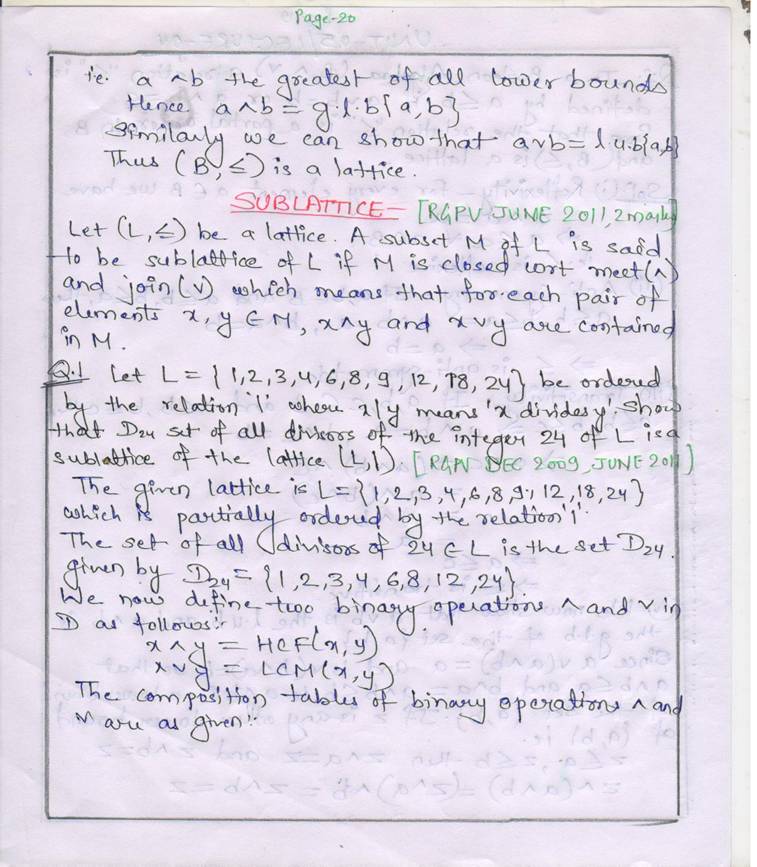 Page-20
ie. a ∧b the greatest of all lower bounds
Hence, a∧b = g.l.b{a,b}
Similarly we can show that a∨b= l.u.b{a,b}
Thus (B,≤) is a lattice.
SUBLATTICE- [RGPV JUNE 2011, 2marks]
Let (L,≤) be a lattice. A subset M of L is said
to be sublattice of L if M is closed wrt meet(∧)
and join(∨) which means that for each pair of
elements x,y ∈ M, x∧y and x∨y are contained
in M.
Q.1 Let L = {1,2,3,4,6,8,9,12,18,24} be ordered
by the relation '|' where x|y means 'x divides y'. Show
that D24 set of all divisors of the integer 24 of L is a
sublattice of the lattice (L,|). [RGPV DEC 2009, JUNE 2011]
The given lattice is L={1,2,3,4,6,8,9,12,18,24}
which is partially ordered by the relation '|'.
The set of all divisors of 24 ∈ L is the set D24.
given by D24= {1,2,3,4,6,8,12,24}
We now define two binary operations ∧ and ∨ in
D as follows:-
x∧y = HCF(x,y)
x∨y = LCM(x,y)
The composition tables of binary operations ∧ and
∨ are as given:-